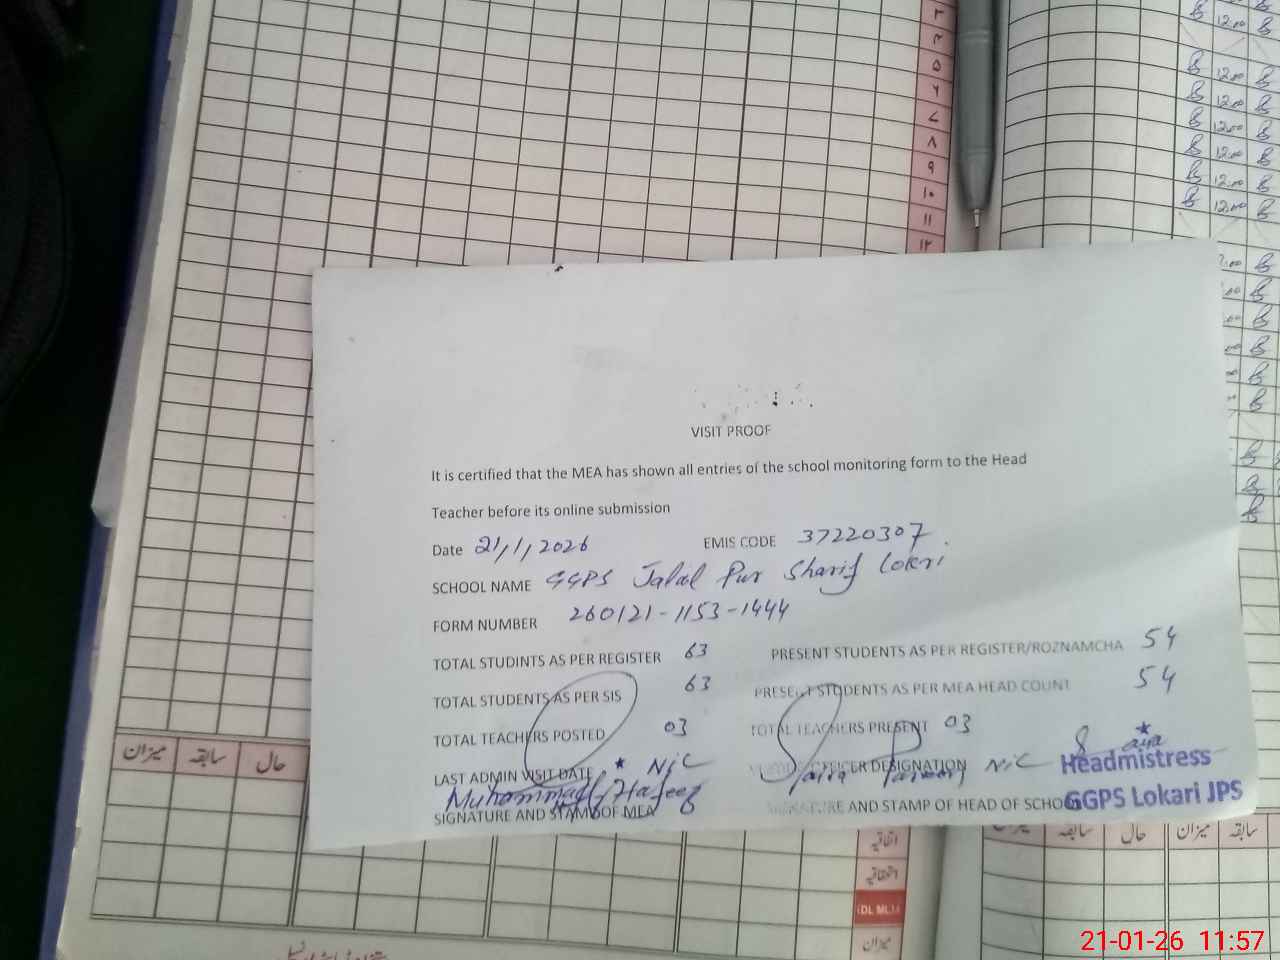 ۳
۴
۵
۶
۷
۸
۹
۱۰
۱۱
۱۲
12.00
12.00
12.00
12.00
12.00
12.00
12.00
VISIT PROOF
It is certified that the MEA has shown all entries of the school monitoring form to the Head
Teacher before its online submission
Date 21/1/2026 EMIS CODE 37220307
SCHOOL NAME GGPS Jalal Pur Sharif Lokri
FORM NUMBER 260121-1153-1444
TOTAL STUDINTS AS PER REGISTER 63 PRESENT STUDENTS AS PER REGISTER/ROZNAMCHA 54
TOTAL STUDENTS AS PER SIS 63 PRESENT STUDENTS AS PER MEA HEAD COUNT 54
TOTAL TEACHERS POSTED 03 TOTAL TEACHERS PRESENT 03
LAST ADMIN VISIT DATE Nil OFFICER DESIGNATION Nil
Muhammad Hafeez
SIGNATURE AND STAMP OF MEA SIGNATURE AND STAMP OF HEAD OF SCHOOL
Headmistress
GGPS Lokari JPS
میزان سابقہ حال
میزان سابقہ حال میزان سابقہ
اتفاقیہ
میزان
21-01-26 11:57